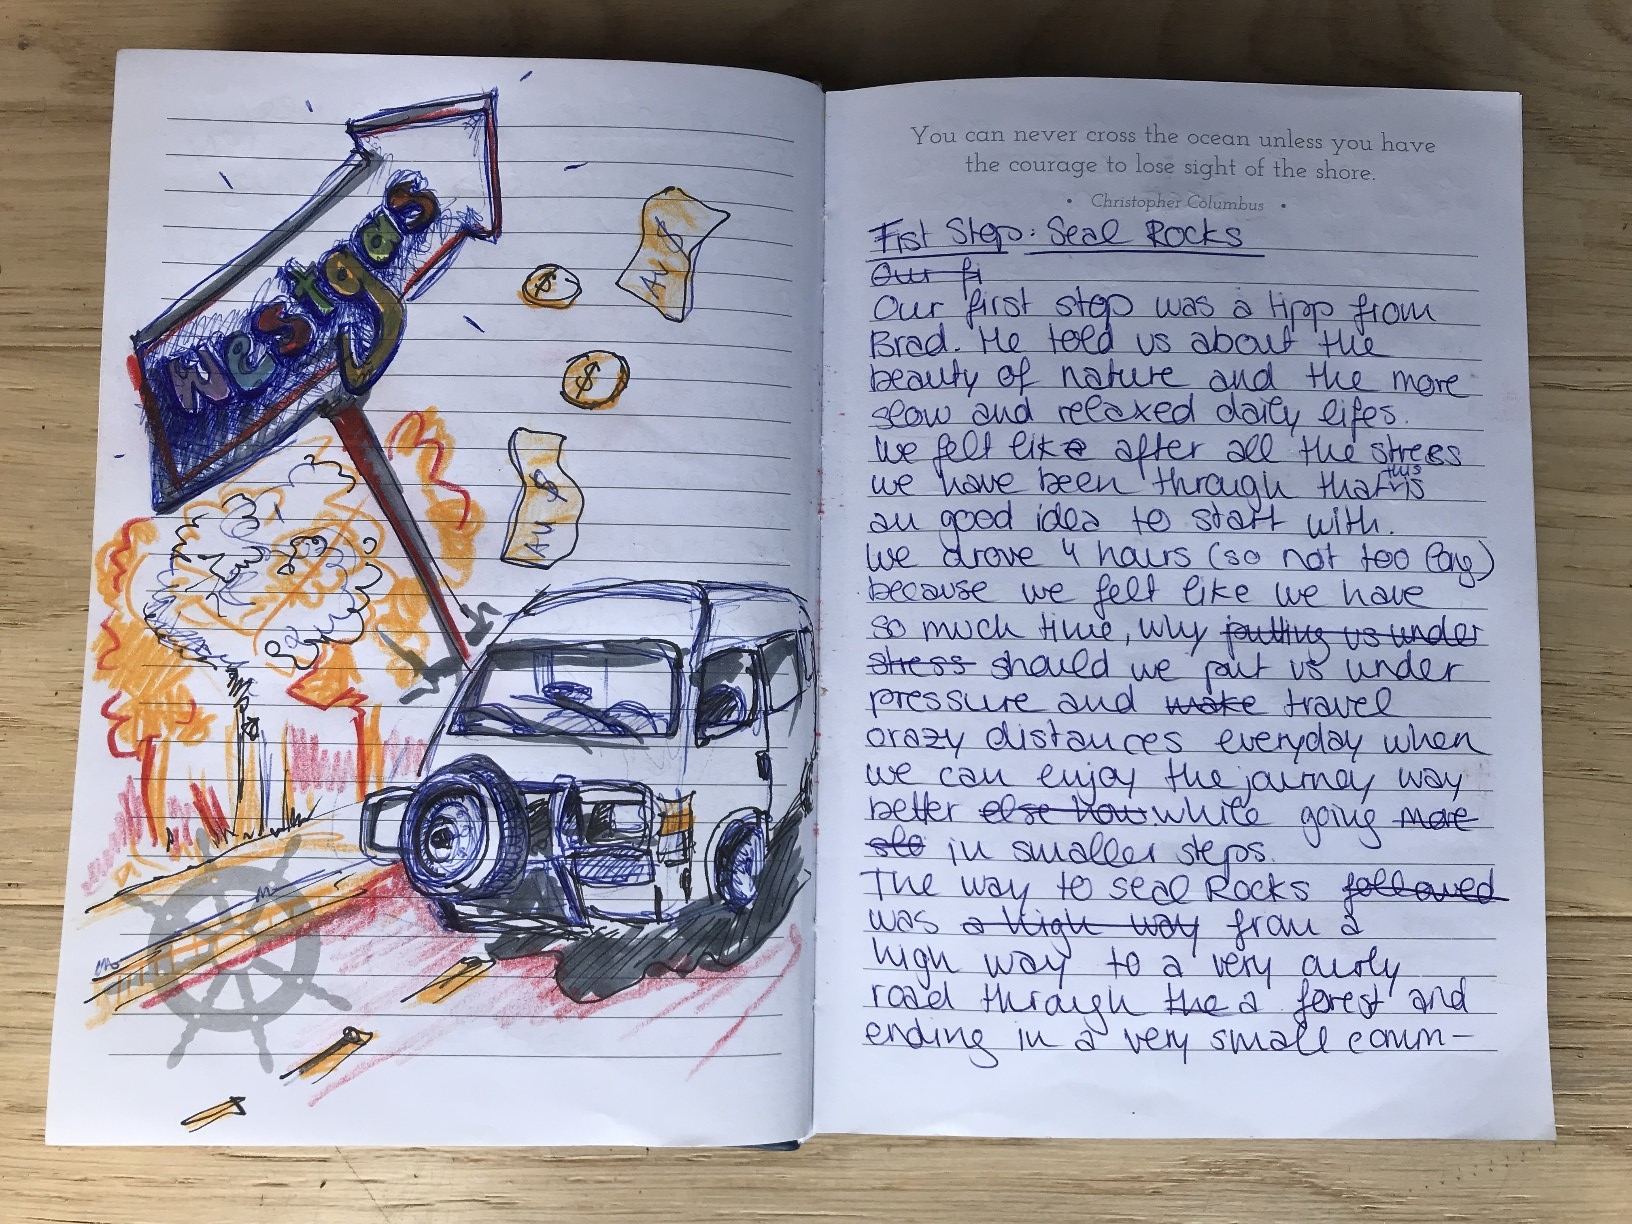 Westgas
$
AU $
$
AU $
You can never cross the ocean unless you have
the courage to lose sight of the shore.
• Christopher Columbus •
Fist Stop: Seal Rocks
Our fi
Our first stop was a tipp from
Brad. He told us about the
beauty of nature and the more
slow and relaxed daily lifes.
We felt like after all the stress
we have been through that this is
an good idea to start with.
We drove 4 hours (so not too long)
because we felt like we have
so much time, why putting us under
stress should we put us under
pressure and make travel
crazy distances everyday when
we can enjoy the journey way
better else how while going more
slo in smaller steps.
The way to Seal Rocks followed
was a high way from a
high way to a very curly
road through the a forest and
ending in a very small comm-